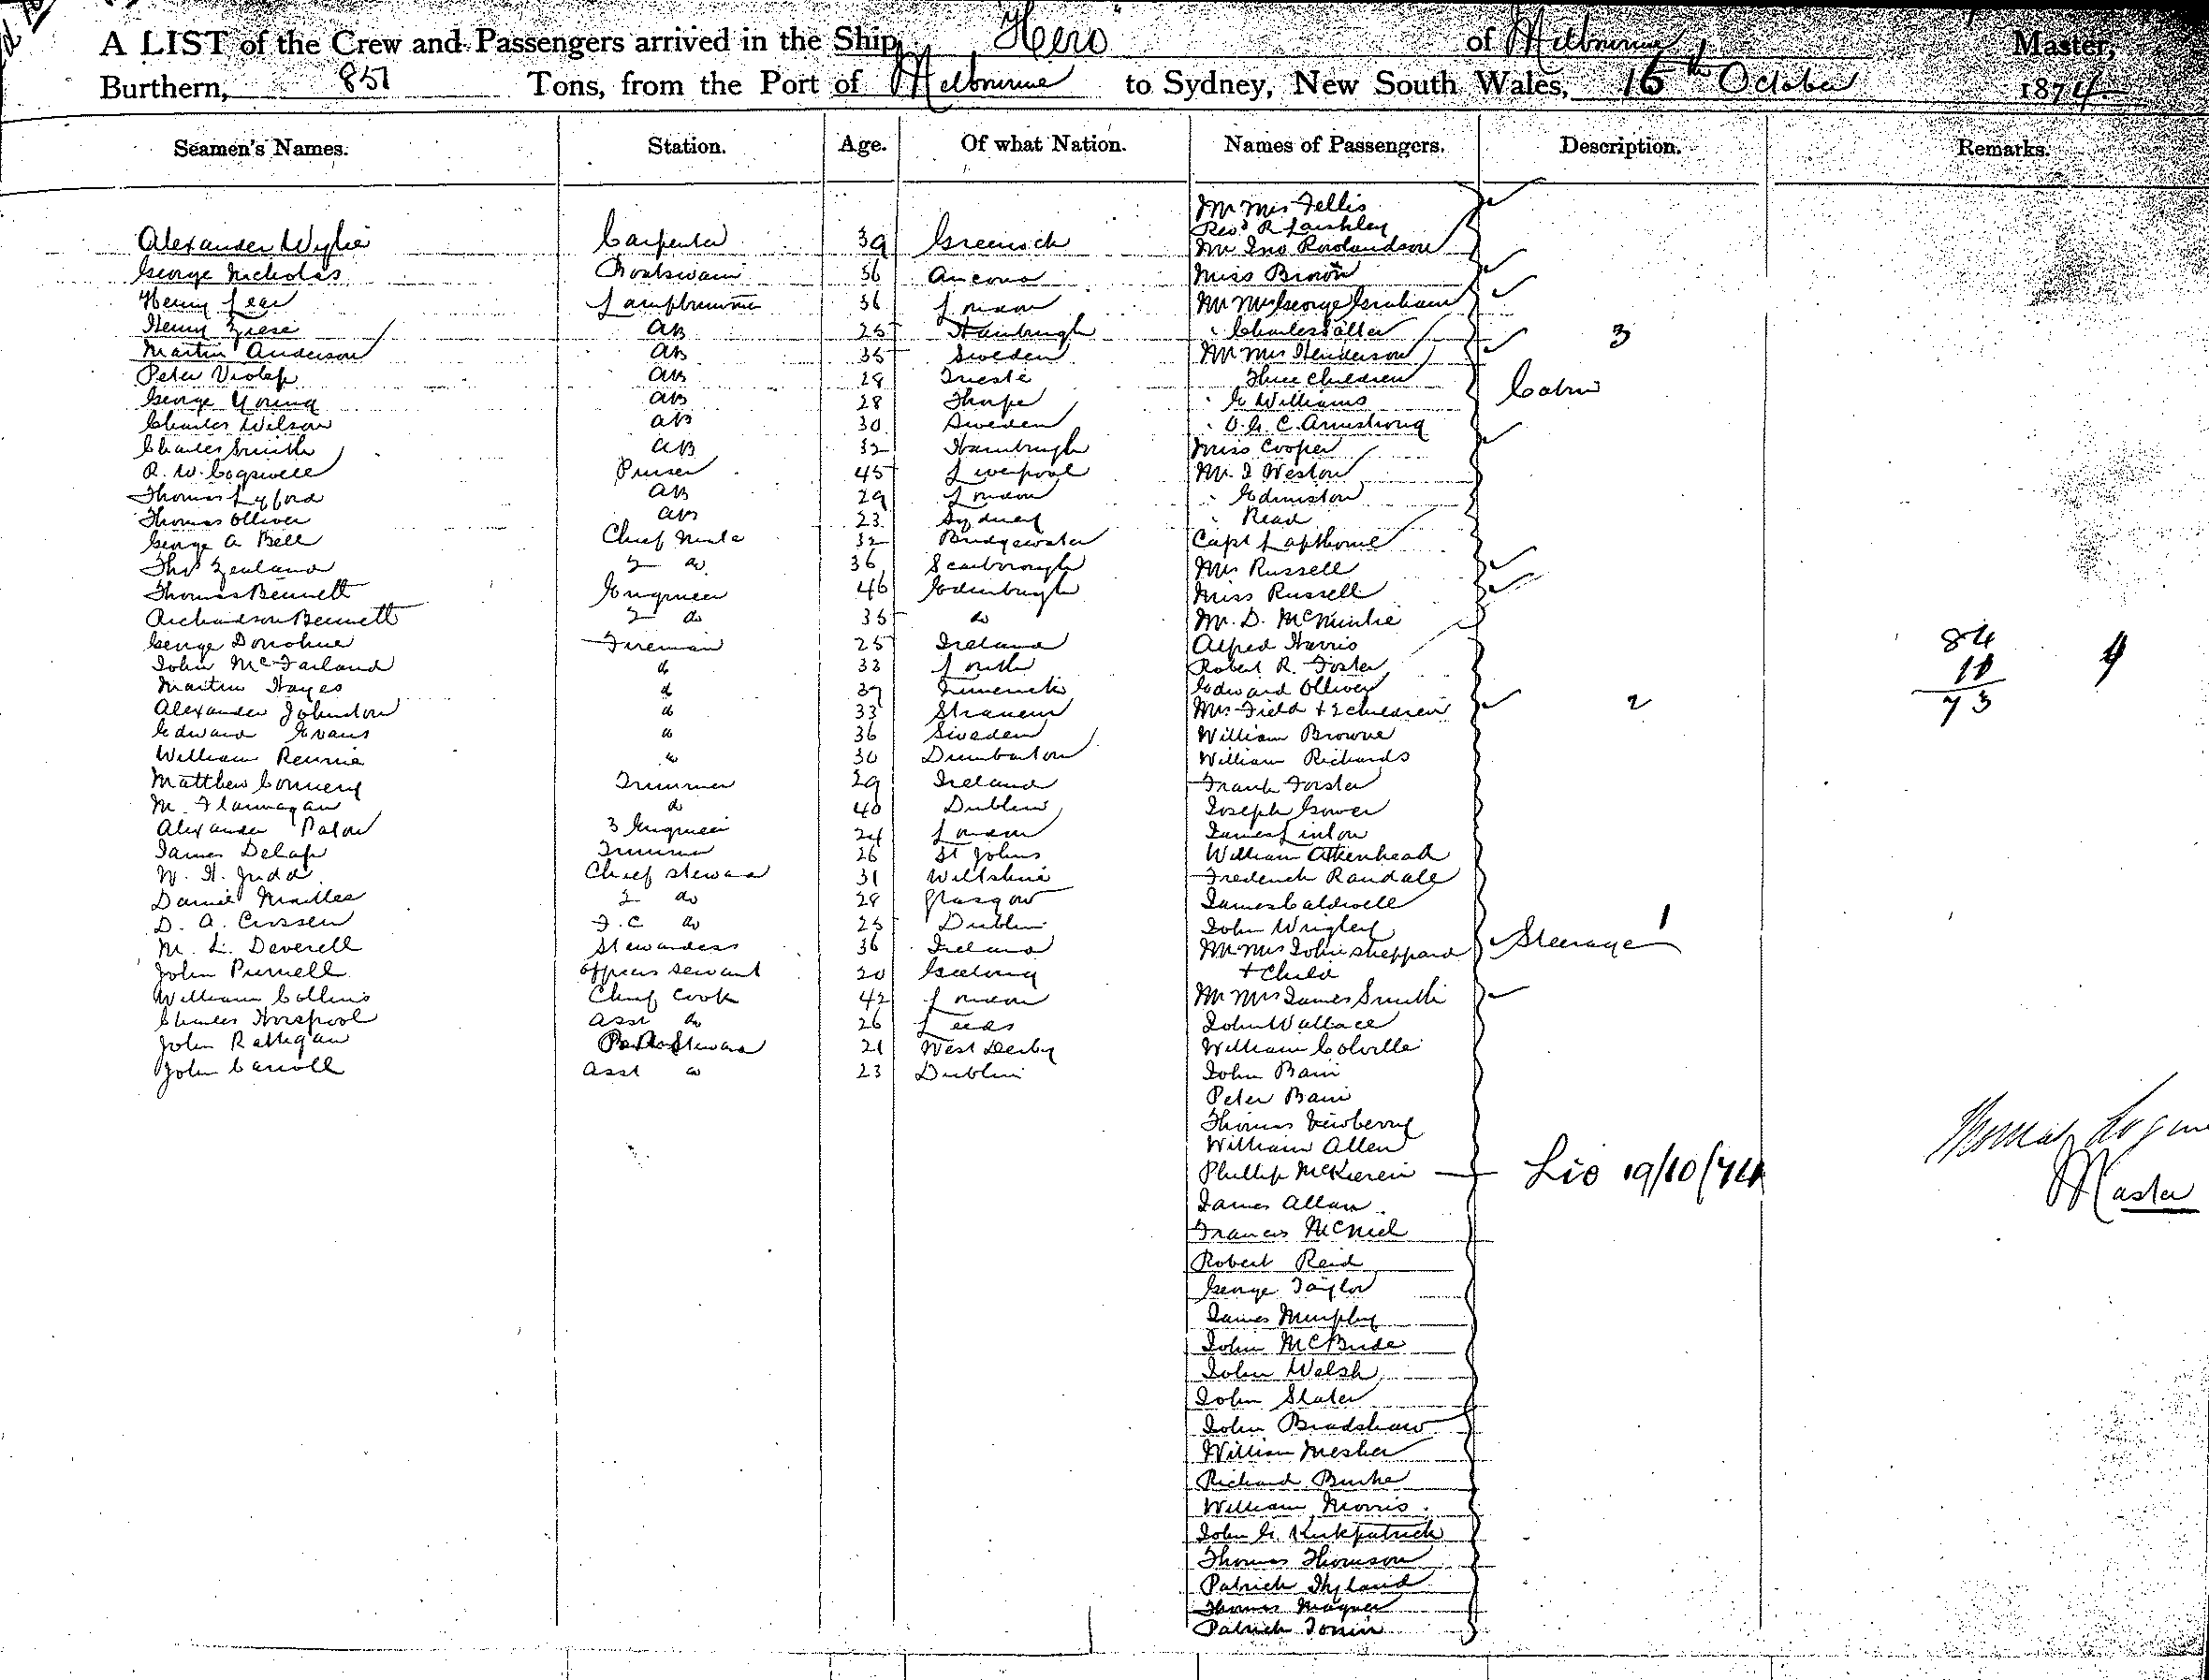 A LIST of the Crew and Passengers arrived in the Ship "Hero" of Melbourne, Master,
Burthern, 851 Tons, from the Port of Melbourne to Sydney, New South Wales, 16th October 1874.
Seamen's Names. Station. Age. Of what Nation. Names of Passengers. Description. Remarks.
Mr Mrs Fellis
Revd R Laishley
Alexander Wylie Carpenter 39 Greenock Mr Jno Rowlandson
George Nicholas Boatswain 56 Ancona Miss Brown
Henry Lear Lamptrimmer 36 London Mr Mrs George Graham
Henry Ziese AB 25 Hamburgh " Charles Salter
Martin Anderson AB 35 Sweden Mr Mrs Henderson 3
Peter AB 28 Trieste Three Children Cabin
George Young AB 28 Thorpe " G Williams
Charles Wilson AB 30 Sweden " O. G. C. Armstrong
Charles Smith AB 32 Hamburgh Miss Cooper
R. W. Cogswell Purser 45 Liverpool Mr. J Weston
Thomas Lyford AB 29 London " Edmiston
Thomas Olliver AB 23 Sydney " Read
George A Bell Chief Mate 32 Bridgewater Capt Lapthorne
Thos Zealand 2 do 36 Scarborough Mrs Russell
Thomas Bennett Engineer 46 Edinburgh Miss Russell
Richardson Bennett 2 do 35 do Mr. D.
George Donohue Fireman 25 Ireland Alfred Harris
John McFarland d 33 Louth Robert R. Foster 84
Martin Hayes d 39 Limerick Edward Olliver 11
Alexander Johnston d 33 Stranraer Mrs Field + 2 children 2 73
Edward Evans d 36 Sweden William Browne
William Rennie d 30 Dumbarton William Richards
Matthew Connery Trimmer 29 Ireland Frank Forster
M. Flannagan d 40 Dublin Joseph Gower
Alexander Paton 3 Engineer 24 London James Linton
James Delap Trimmer 26 St Johns William Aikenhead
W. H. Judd Chief Steward 31 Wiltshire Frederick Randall
Daniel 2 do 28 Glasgow James Caldwell
D. A. Crossen F. C do 25 Dublin John Wrigley 1
M. L. Deverell Stewardess 36 Ireland Mr Mrs John Sheppard Steerage
John Purnell officers servant 20 Geelong + Child
William Collins Chief Cook 42 London Mr Mrs James Smith
Charles Horspool Asst do 26 Leeds John Wallace
John Rattigan Steward 21 West Derby William Colville
John Carroll Asst do 23 Dublin John Bain
Peter Bain
Thomas Newberry
William Allen
Phillip McKieren — Lio 19/10/74
James Allan
Francis McNiel
Robert Reid
George Taylor
James Murphy
John McBride
John Welsh
John Slater
John Bradshaw
William Mesher
Richard Burke
William Morris
John G. Kirkpatrick
Thomas Thomson
Patrick Hyland
Thomas Magner
Patrick
Thomas Logan
Master